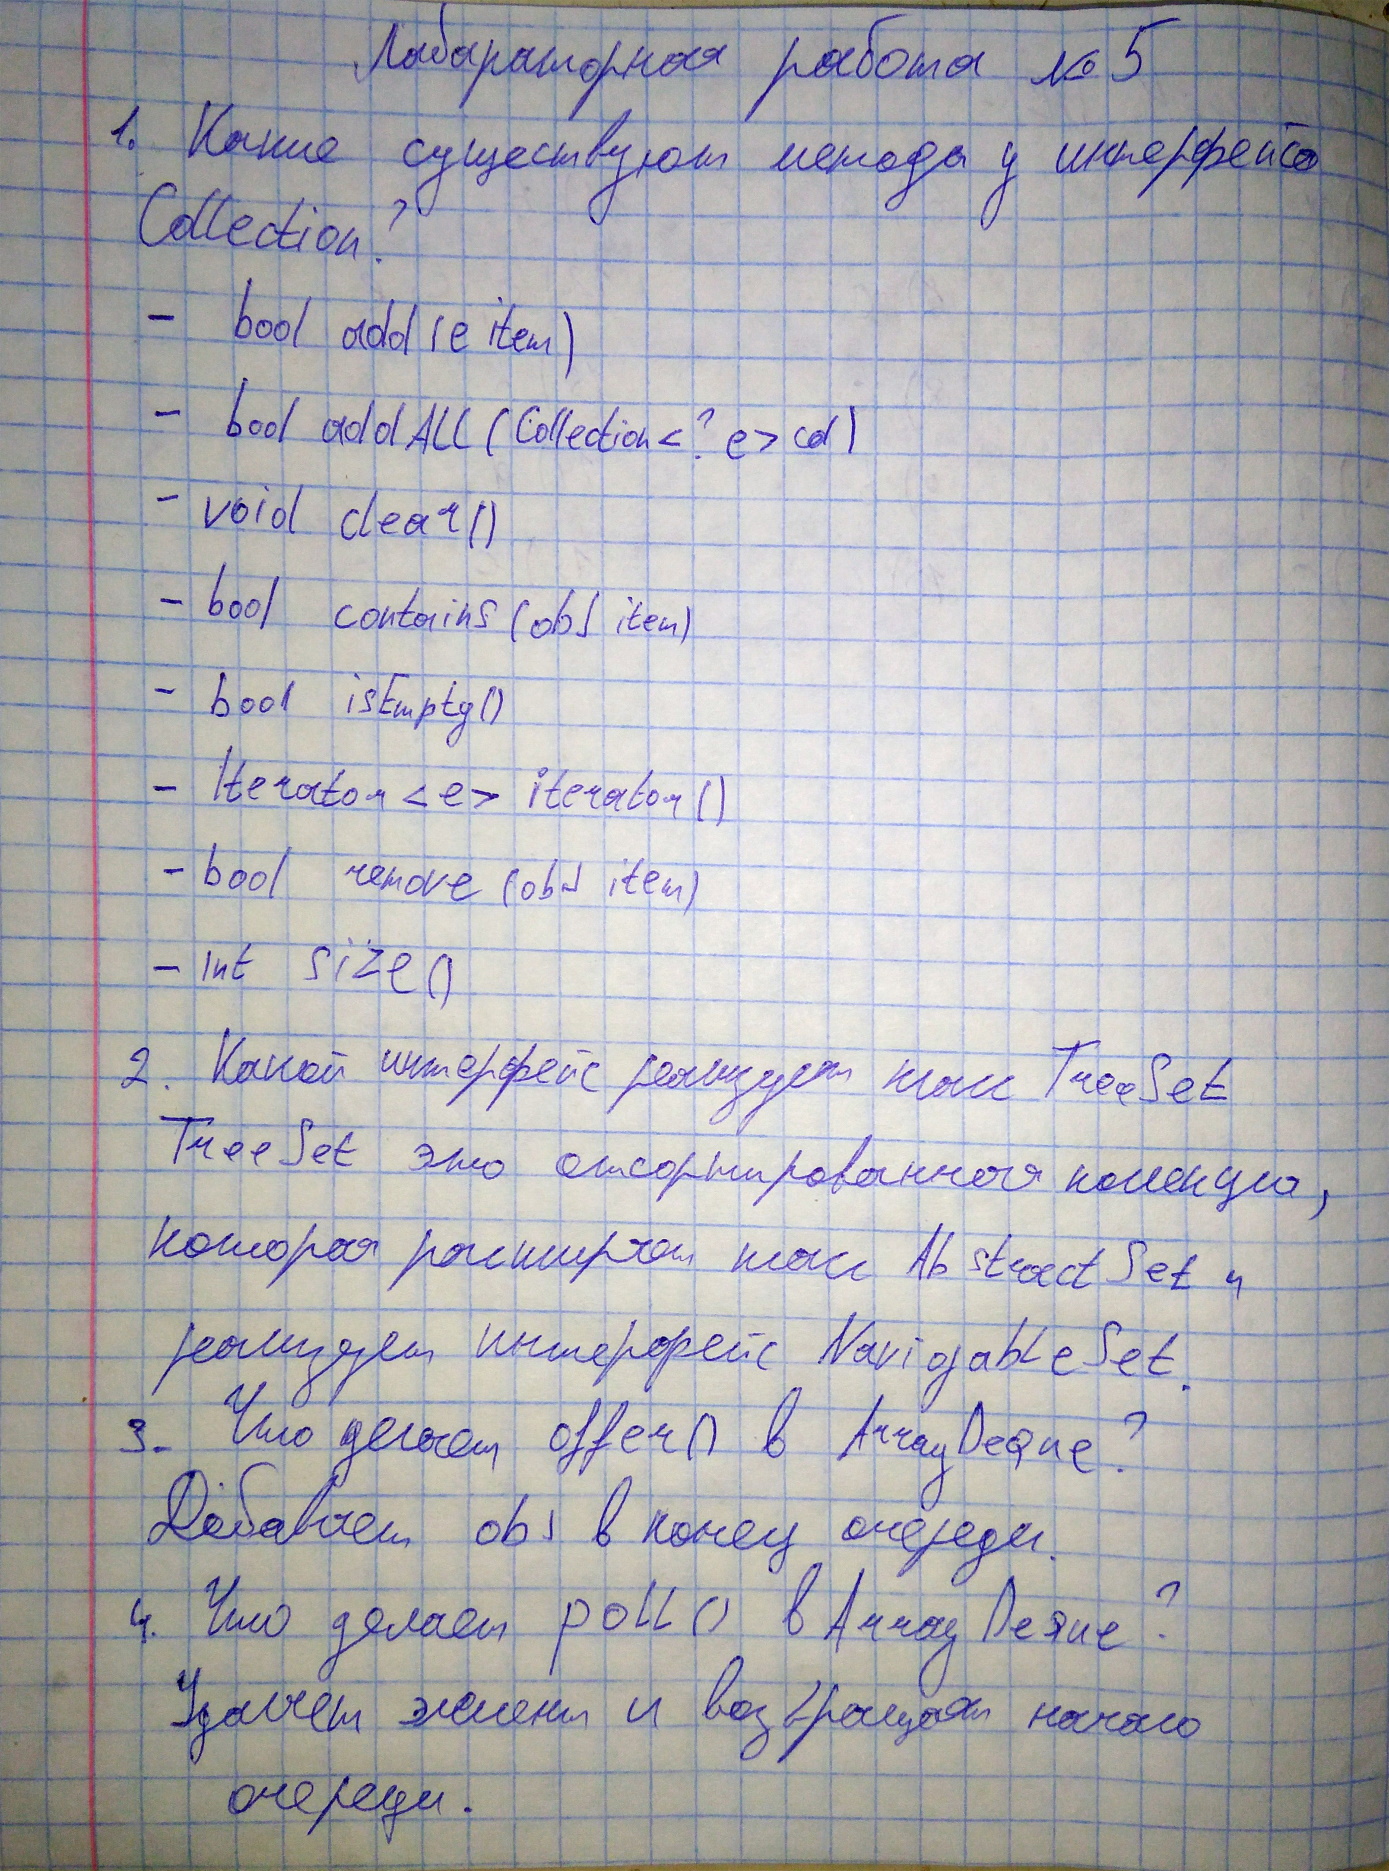 Лабараторная работа №5
1. Какие существуют методы у интерфейса
Collection?
- bool add(e item)
- bool addALL(Collection<? e> col)
- void clear()
- bool contains(obj item)
- bool isEmpty()
- Iterator<e> iterator()
- bool remove(obj item)
- int size()
2. Какой интерфейс реализует класс TreeSet
TreeSet это отсортированная колекция,
которая расширяет класс AbstractSet и
реализует интерфейс NavigableSet.
3. Что делает offer() в ArrayDeque?
Добавляет obj в конец очереди.
4. Что делает poll() в ArrayDeque?
Удаляет элемент и возвращает начало
очереди.